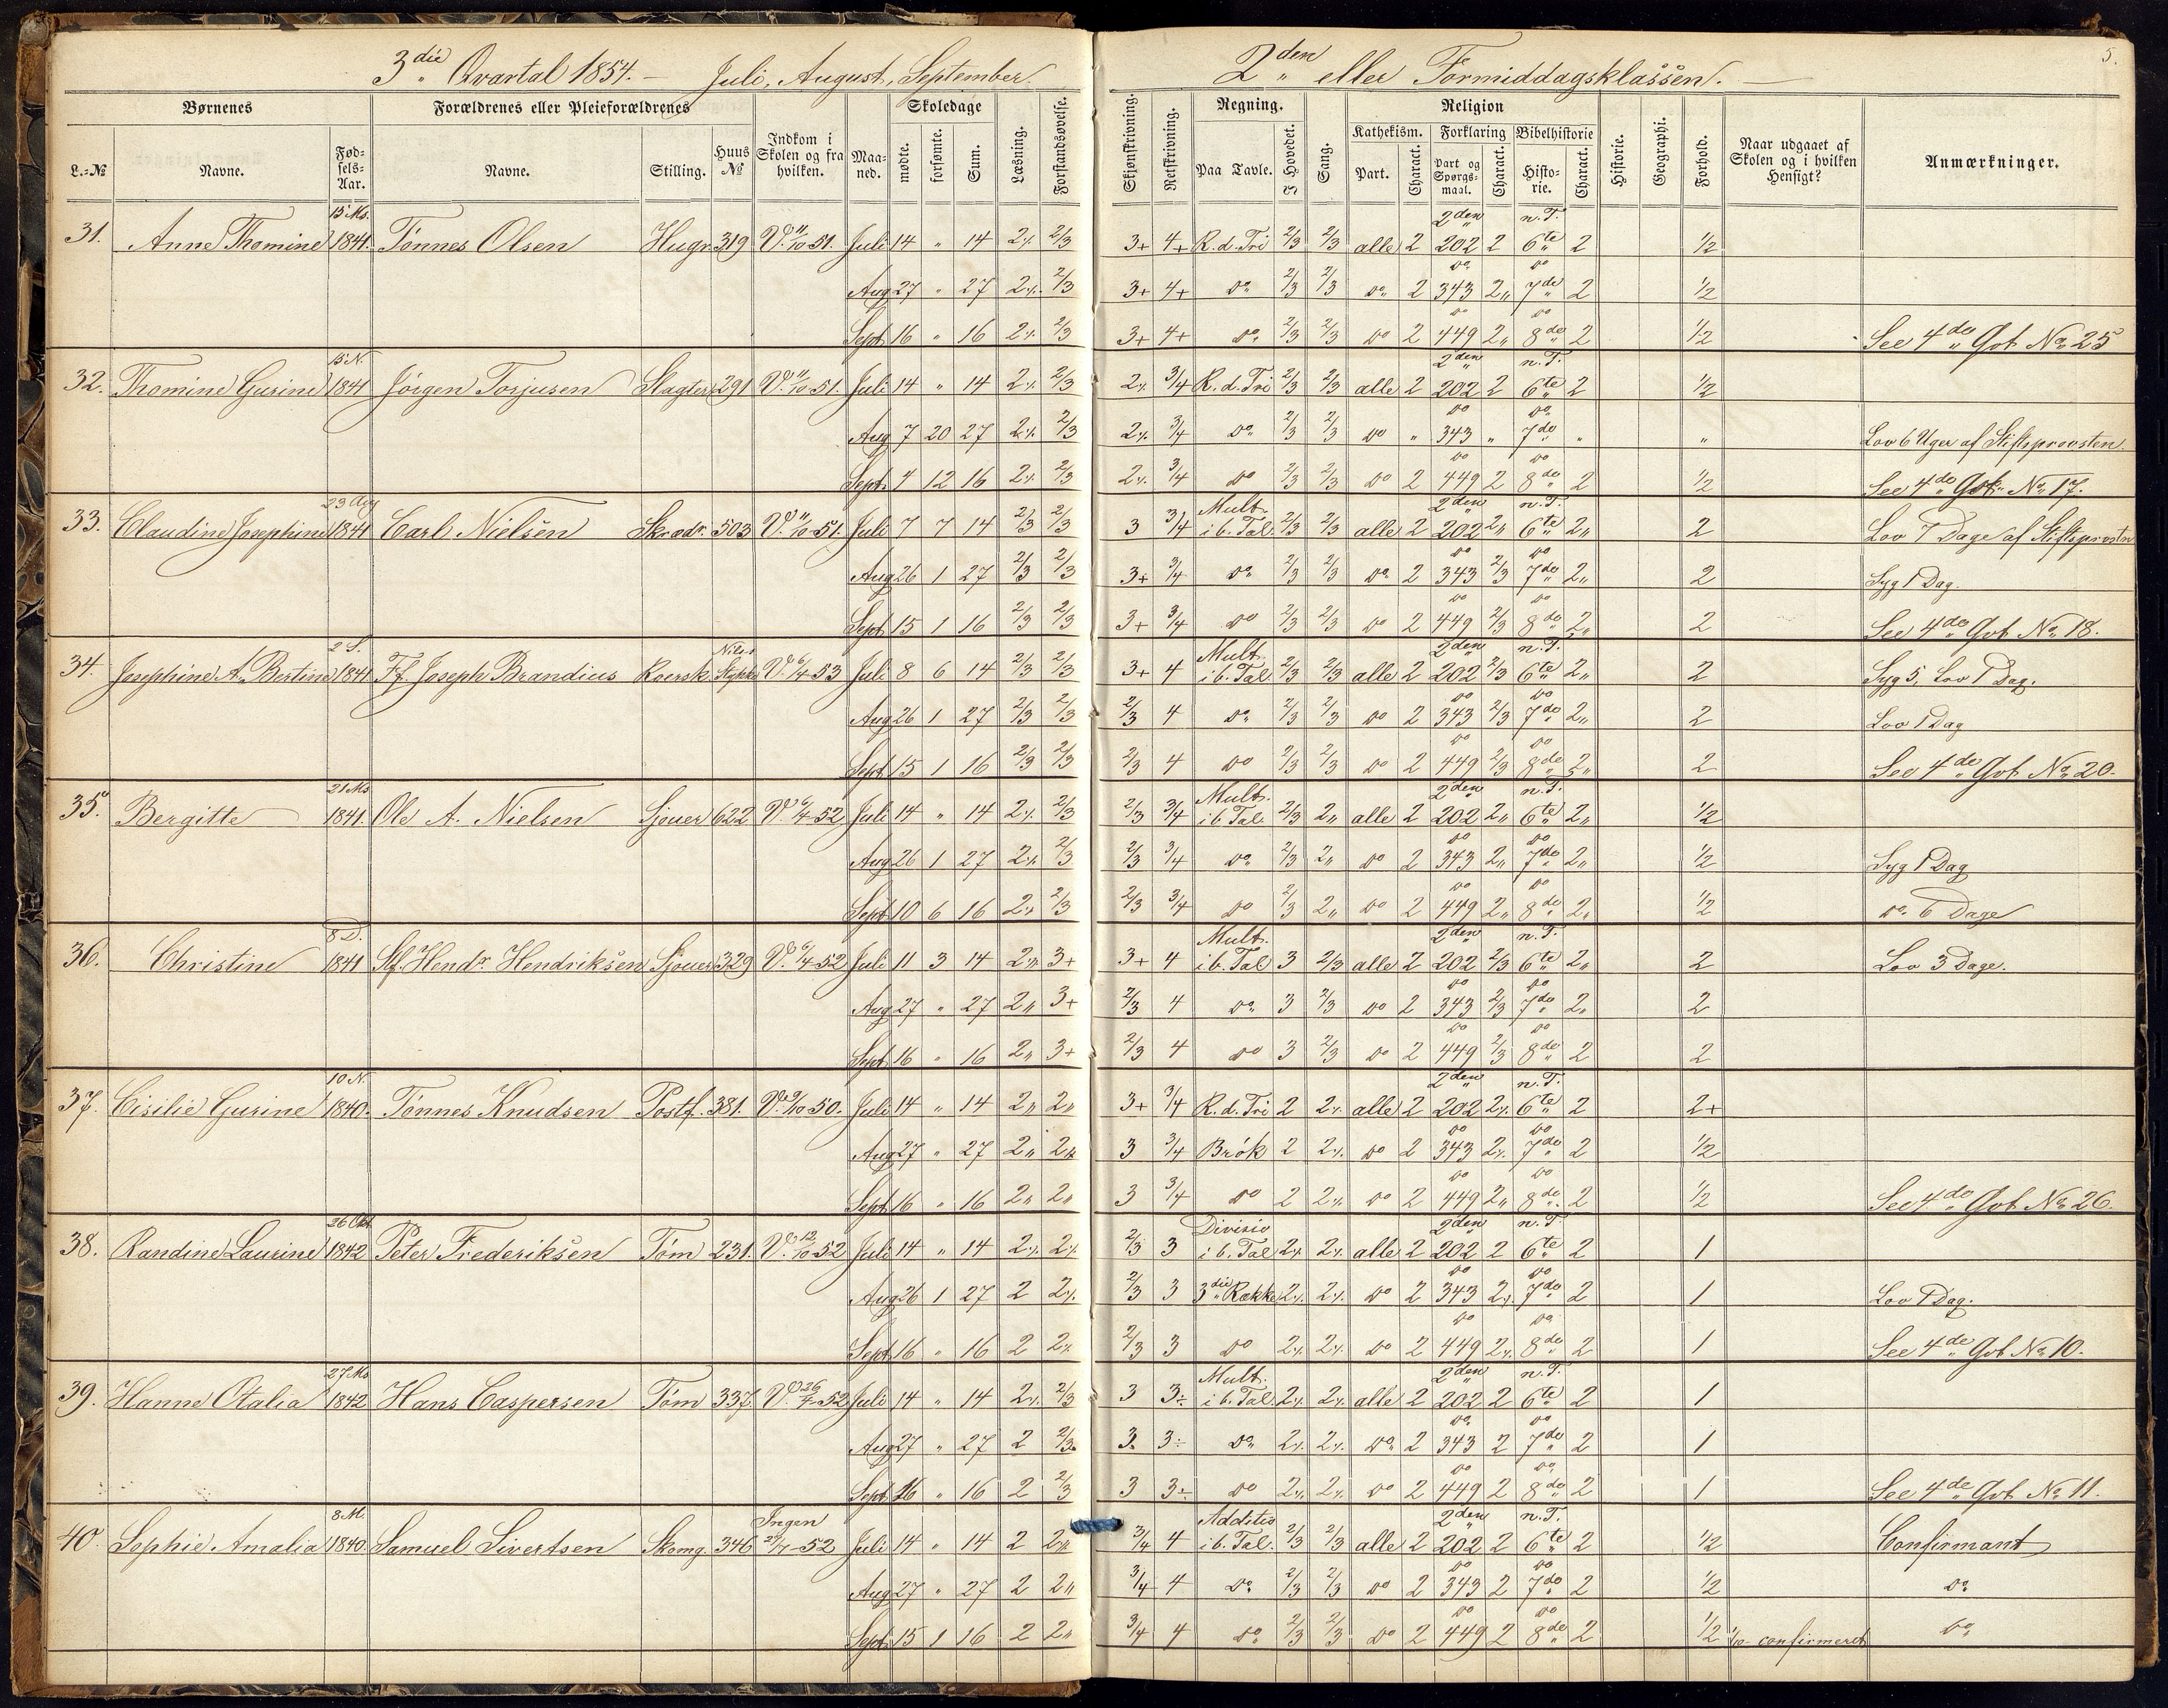 3die Qvartal 1854. — Juli, August, September.
2den eller Formiddagsklassen. —
5.
Børnenes
Forældrenes eller Pleieforældrenes
Indkom i Skolen og fra hvilken.
Maaned.
Skoledage
Læsning.
Forstandsøvelse.
Skjønskrivning.
Retskrivning.
Regning.
Sang.
Religion
Historie.
Geographi.
Forhold.
Naar udgaaet af Skolen og i hvilken Hensigt?
Anmærkninger.
L.-№ Navne. Fødsels-Aar. Navne. Stilling. Huus № mødte. forsømte. Sum.
Paa Tavle. I Hovedet. Kathekism. Part. Charact. Forklaring Part og Spørgsmaal. Charact. Bibelhistorie Historie. Charact.
15 Ms. 2den n. T.
31. Anne Thomine 1841. Tønnes Olsen Hugr. 319 V. 11/10 51. Juli 14 " 14 2 2/3 3+ 4+ R. d. Tri 2/3 2/3 alle 2 202 2 6te 2 1/2
Aug 27 " 27 2 2/3 3+ 4+ do 2/3 2/3 do 2 343 2 7de 2 1/2
Sept 16 " 16 2 2/3 3+ 4+ do 2/3 2/3 do 2 449 2 8de 2 1/2 See 4de Qvt No 25
15 N. 2den n. T.
32. Thomine Gurine 1841 Jörgen Torjusen Slagter 291 V. 11/10 51. Juli 14 " 14 2 2/3 2 3/4 R. d. Tri 2/3 2/3 alle 2 202 2 6te 2 1/2
Aug 7 20 27 2 2/3 2 3/4 do 2/3 2/3 do " 343 " 7de " " Lov 6 Uger af Stiftsprovsten.
Sept 4 12 16 2 2/3 2 3/4 do 2/3 2/3 do 2 449 2 8de 2 1/2 See 4de Qvt No 17.
23 Aug Mult. 2den n. T.
33. Claudine Josephine 1841 Carl Nielsen Skrædr. 503 V. 11/10 51. Juli 7 7 14 2/3 2/3 3 3/4 i b. Tal. 2/3 2/3 alle 2 202 2 6te 2 2 Lov 7 Dage af Stiftsprovstn
Aug 26 1 27 2/3 2/3 3+ 3/4 do 2/3 2/3 do 2 343 2/3 7de 2 2 Syg 1 Dag.
Sept 15 1 16 2/3 2/3 3+ 3/4 do 2/3 2/3 do 2 449 2/3 8de 2 2 See 4de Qvt No 18.
2 S. Mult. 2den n. T.
34. Josephine A. Bertine 1841 Ff. Joseph Brandius V. 6/4 53 Juli 8 6 14 2/3 2/3 3+ 4 i b. Tal 2/3 2/3 alle 2 202 2/3 6te 2 2 Syg 5, Lov 1 Dag.
Aug 26 1 27 2/3 2/3 2/3 4 do 2/3 2/3 do 2 343 2/3 7de 2 2 Lov 1 Dag
Sept 15 1 16 2/3 2/3 2/3 4 do 2/3 2/3 do 2 449 2/3 8de 2 2 See 4de Qvt No 20.
21 Ms Mult. 2den n. T.
35. Bergitte 1841. Ole A. Nielsen Sjouer 622 V. 6/4 52 Juli 14 " 14 2 2/3 2/3 3/4 i b. Tal. 2/3 2 alle 2 202 2 6te 2 1/2
Aug 26 1 27 2 2/3 2/3 3/4 do 2/3 2 do 2 343 2 7de 2 1/2 Syg 1 Dag
Sept 10 6 16 2 2/3 2/3 3/4 do 2/3 2 do 2 449 2 8de 2 1/2 do 6 Dage
8 D. Mult. 2den n. T.
36. Christine 1841 Sf. Hendr. Hendriksen Sjouer 329 V. 6/4 52 Juli 11 3 14 2 3+ 3+ 4 i b. Tal 3 2/3 alle 2 202 2/3 6te 2 2 Lov 3 Dage.
Aug 27 " 27 2 3+ 2/3 4 do 3 2/3 do 2 343 2/3 7de 2 2
Sept 16 " 16 2 3+ 2/3 4 do 3 2/3 do 2 449 2/3 8de 2 2
10 N. 2den n. T.
37. Cisilie Gurine 1840. Tønnes Knudsen Postf. 381. V. 9/10 50. Juli 14 " 14 2 2 3+ 3/4 R. d. Tri 2 2 alle 2 202 2 6te 2 2+
Aug 27 " 27 2 2 3 3/4 Brök 2 2 do 2 343 2 7de 2 1/2
Sept 16 " 16 2 2 3 3/4 do 2 2 do 2 449 2 8de 2 1/2 See 4de Qvt No 26.
26 Okt Divisio 2den n. T
38. Randine Laurine 1842 Peter Frederiksen Töm 231. V. 12/10 52 Juli 14 " 14 2 2 2/3 3 i b. Tal 2 2 alle 2 202 2 6te 2 1
Aug 26 1 27 2 2 2/3 3 3die Række 2 2 do 2 343 2 7de 2 1 Lov 1 Dag.
Sept 16 " 16 2 2 2/3 3 do 2 2 do 2 449 2 8de 2 1 See 4de Qvt No 10.
27 Ms Mult. 2den n. T.
39. Hanne Otalia 1842 Hans Caspersen Töm 337. V. 26/4 52 Juli 14 " 14 2 2/3 3 3÷ i b. Tal. 2 2 alle 2 202 2 6te 2 1
Aug 27 " 27 2 2/3 3. 3÷ do 2 2 do 2 343 2 7de 2 1
Sept 16 " 16 2 2/3 3 3÷ do 2 2 do 2 449 2 8de 2 1 See 4de Qvt No 11.
8 M. Ingen Additio 2den n. T.
40. Sophie Amalia 1840. Samuel Sivertsen Skomg. 346 52 Juli 14 " 14 2 2 3/4 4 i b. Tal. 2/3 2/3 alle 2 202 2 6te 2 1/2 Confirmant
Aug 27 " 27 2 2 3/4 4 do 2/3 2/3 do 2 343 2 7de 2 1/2 do
Sept 15 1 16 2 2 3/4 4 do 2/3 2/3 do 2 449 2 8de 2 1/2 1/10 confirmeret do